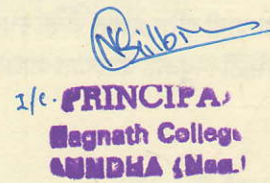 I/c. PRINCIPAL
Nagnath College
AUNDHA (Nag.)